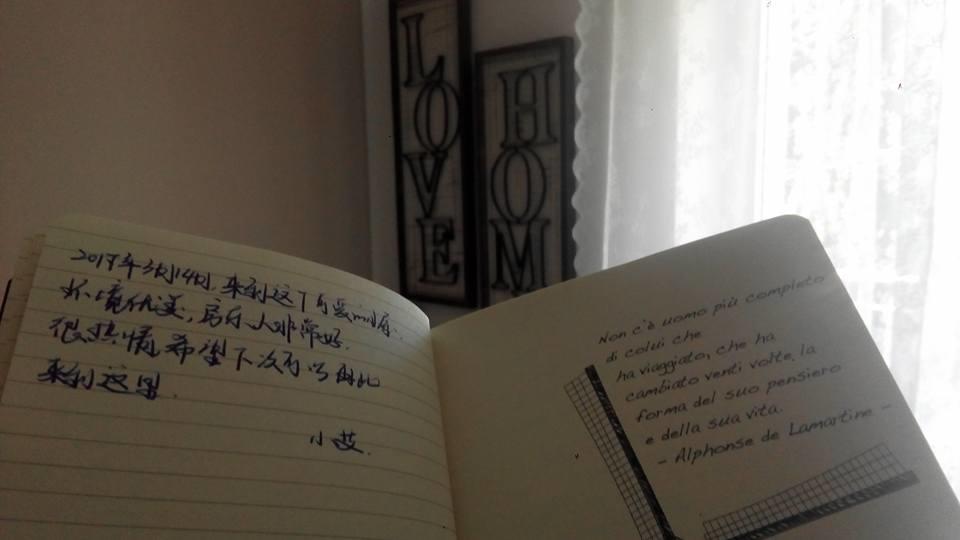 LOVE
HOM
年3月14日,来到这个可爱的房
环境优美,房东人非常好.
很热情,希望下次可以
来到这里.
小艾.
Non c'è uomo più completo
di colui che
ha viaggiato, che ha
cambiato venti volte, la
forma del suo pensiero
e della sua vita.
- Alphonse de Lamartine -